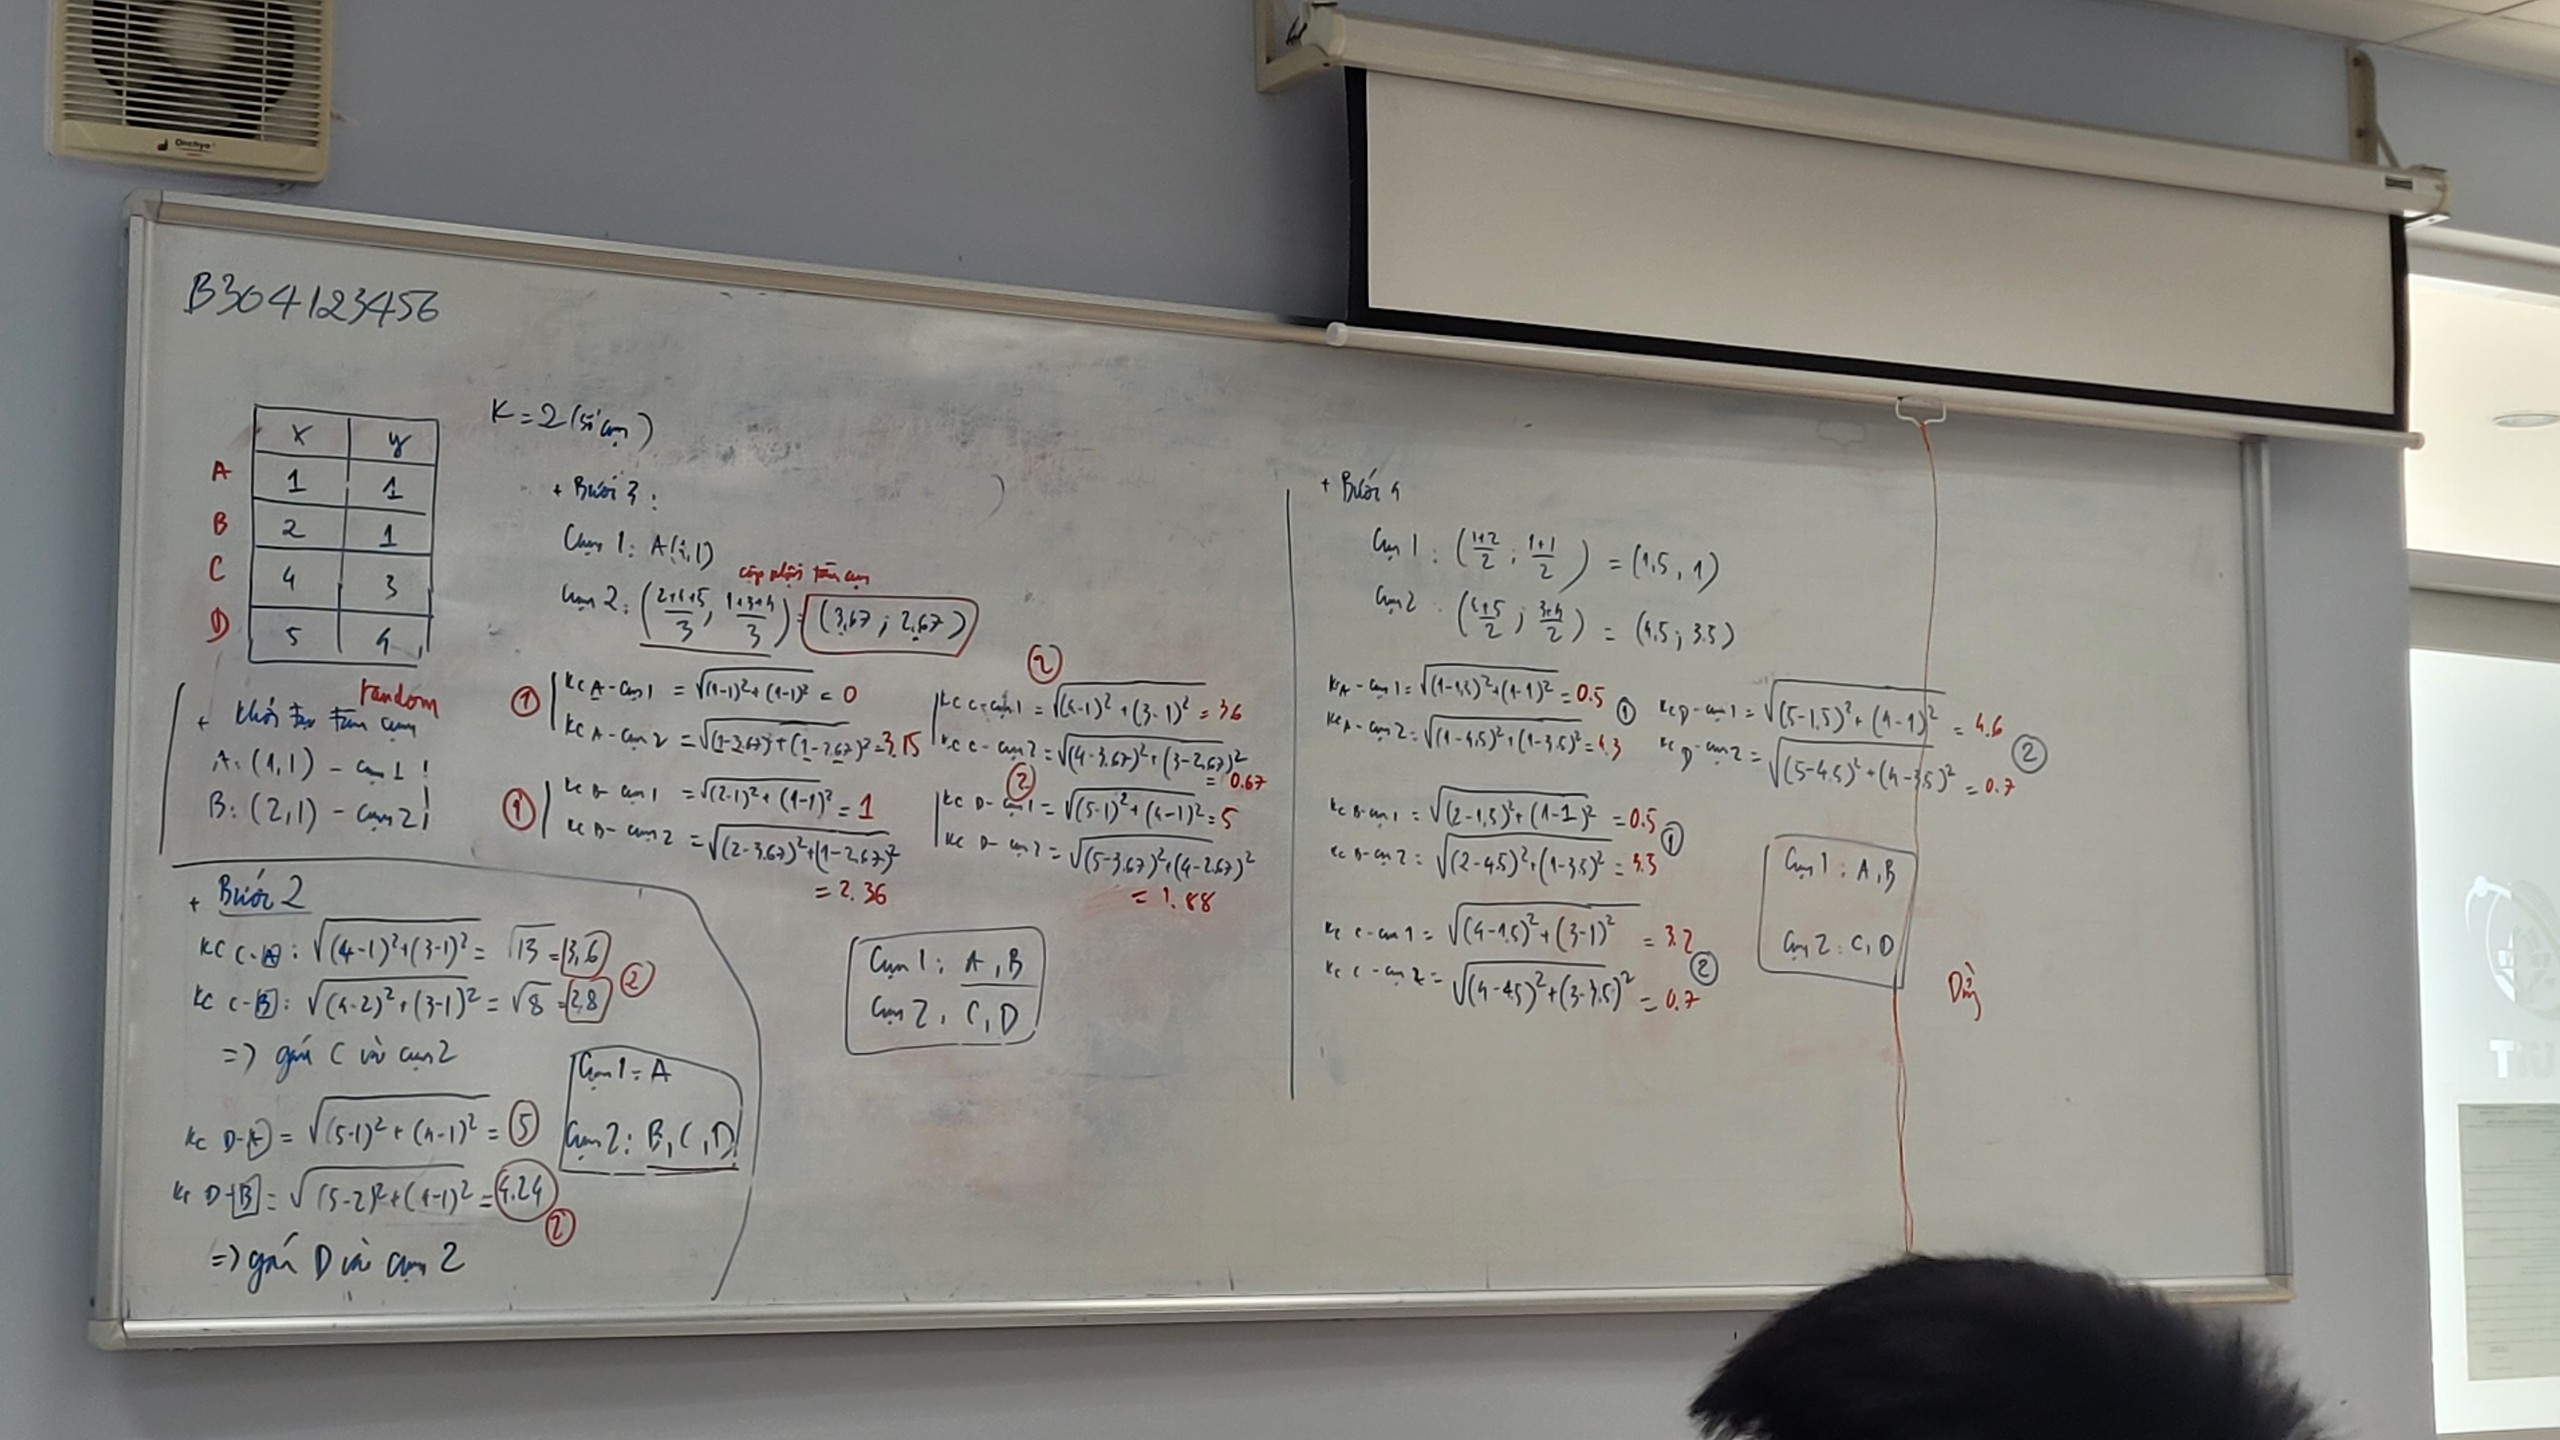 Onchyo
B304123456
x y
A 1 1
B 2 1
C 4 3
D 5 4
K = 2 (số cụm)
random
+ khởi tạo tâm cụm
A: (1,1) - cụm 1
B: (2,1) - cụm 2
+ Bước 2
KC C-A: √(4-1)²+(3-1)² = √13 = 3,6
KC C-B: √(4-2)²+(3-1)² = √8 = 2,8 ②
=> gán C vào cụm 2
KC D-A = √(5-1)²+(4-1)² = 5
KC D-B = √(5-2)²+(4-1)² = 4.24 ②
=> gán D vào cụm 2
Cụm 1: A
Cụm 2: B, C, D
+ Bước 3:
Cụm 1: A(1,1)
cập nhật tâm cụm
Cụm 2: (2+4+5/3, 1+3+4/3) = (3,67; 2,67)
① KC A-cụm 1 = √(1-1)²+(1-1)² = 0
KC A-cụm 2 = √(1-3,67)²+(1-2,67)² = 3.15
① KC B-cụm 1 = √(2-1)²+(1-1)² = 1
KC B-cụm 2 = √(2-3,67)²+(1-2,67)²
= 2.36
②
KC C-cụm 1 = √(4-1)²+(3-1)² = 36
KC C-cụm 2 = √(4-3,67)²+(3-2,67)²
= 0.67
②
KC D-cụm 1 = √(5-1)²+(4-1)² = 5
KC D-cụm 2 = √(5-3,67)²+(4-2,67)²
= 1.88
Cụm 1: A, B
Cụm 2: C, D
+ Bước 4
Cụm 1: (1+2/2; 1+1/2) = (1,5, 1)
Cụm 2: (4+5/2; 3+4/2) = (4,5; 3.5)
KC A-cụm 1 = √(1-1,5)²+(1-1)² = 0.5 ①
KC A-cụm 2 = √(1-4,5)²+(1-3,5)² = 4.3
KC B-cụm 1 = √(2-1,5)²+(1-1)² = 0.5 ①
KC B-cụm 2 = √(2-4,5)²+(1-3,5)² = 3.5
KC C-cụm 1 = √(4-1,5)²+(3-1)² = 3.2
KC C-cụm 2 = √(4-4,5)²+(3-3,5)² = 0.7 ②
KC D-cụm 1 = √(5-1,5)²+(4-1)² = 4.6
KC D-cụm 2 = √(5-4,5)²+(4-3,5)² = 0.7 ②
Cụm 1: A, B
Cụm 2: C, D
Dừng